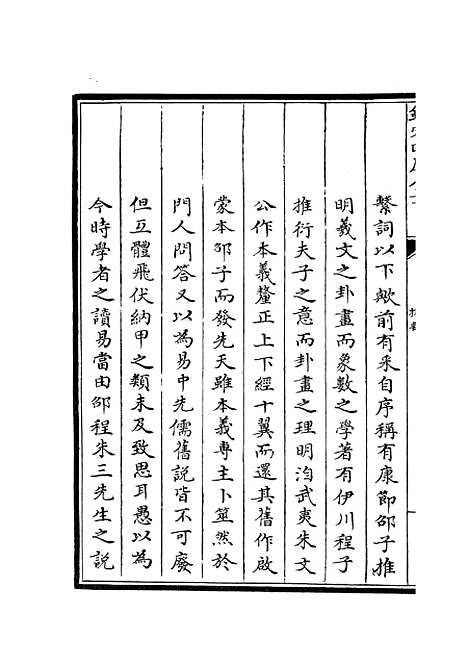 欽定四庫全書
提要
繫詞以下歟前有采自序稱有康節邵子推
明羲文之卦畫而象數之學著有伊川程子
推衍夫子之意而卦畫之理明洎武夷朱文
公作本義釐正上下經十翼而還其舊作啟
蒙本邵子而發先天雖本義專主卜筮然於
門人問答又以為易中先儒舊說皆不可廢
但互體飛伏納甲之類未及致思耳愚以為
今時學者之讀易當由邵程朱三先生之說